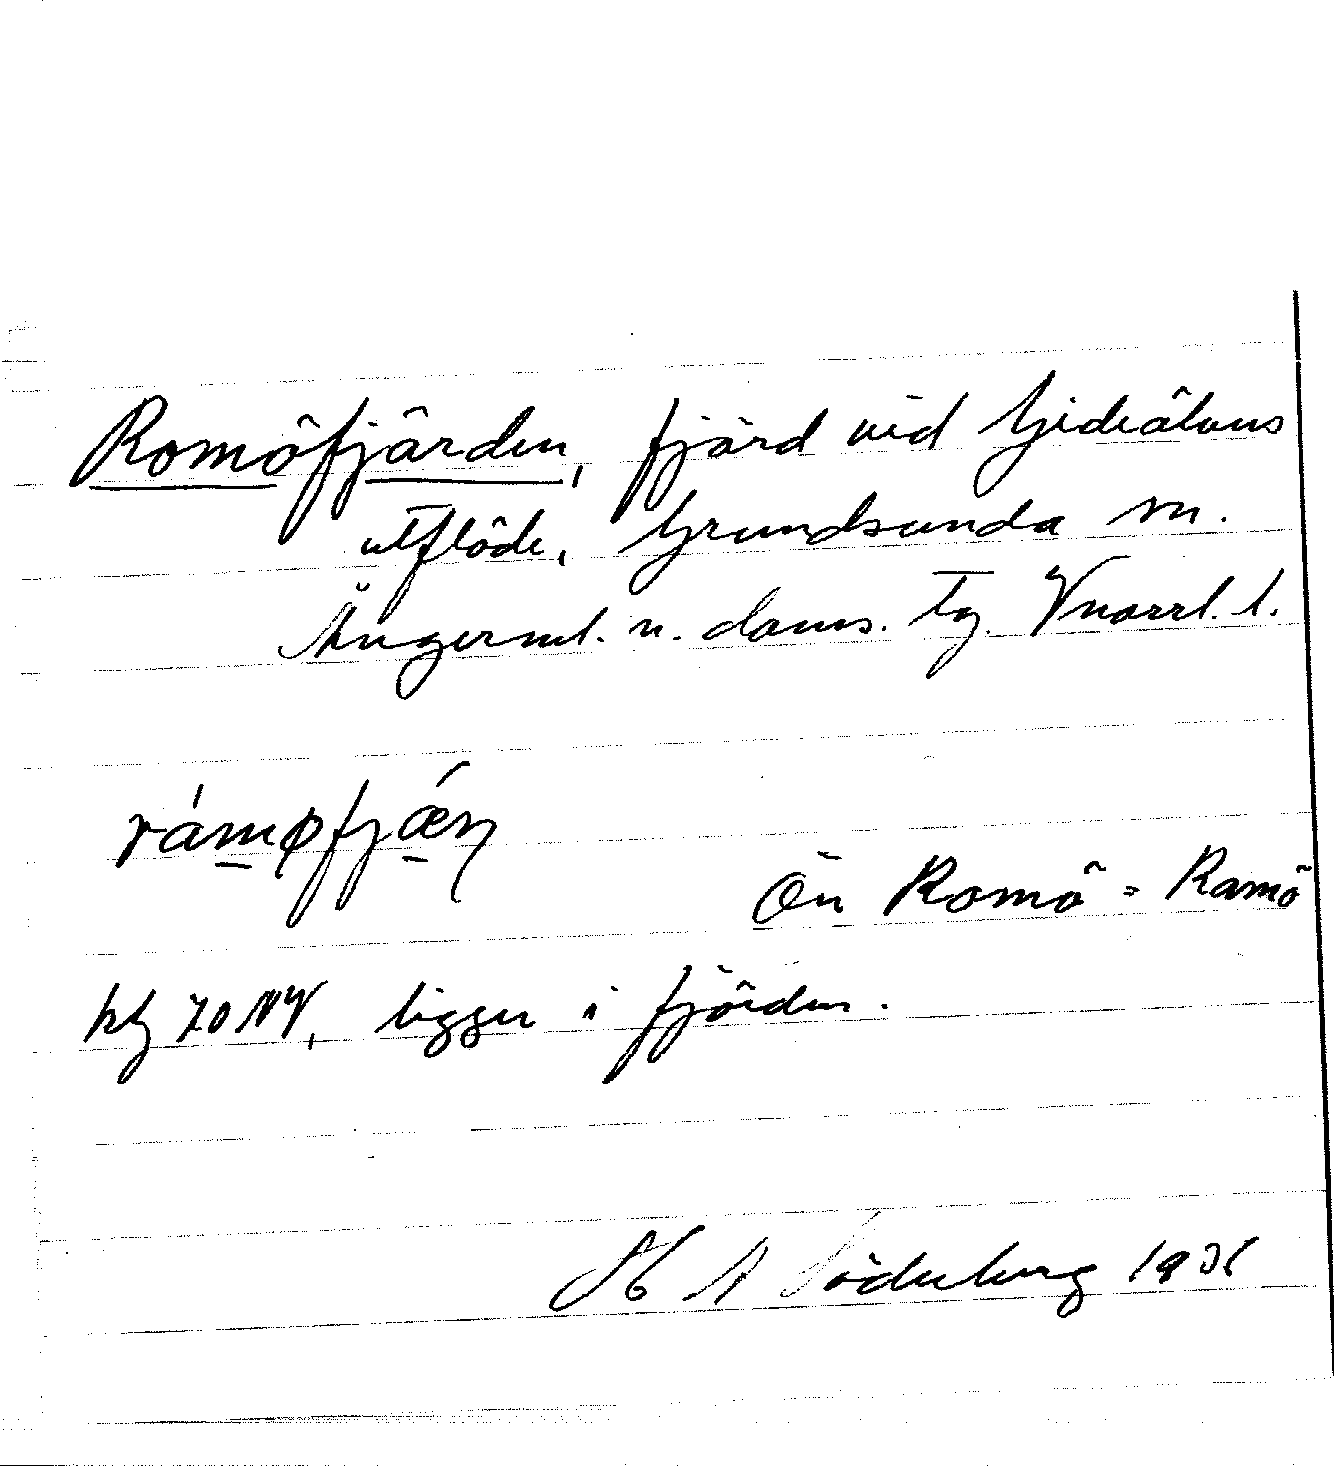 Romöfjärden, fjärd vid Gideälvens
utflöde, Grundsunda sn.
Ångerml. n. doms. Tg. Vnorrl. l.
rámøfjǽṇ
Ön Romö = Ramö
kbl 70 NV, ligger i fjärden.
H A Söderberg 1931